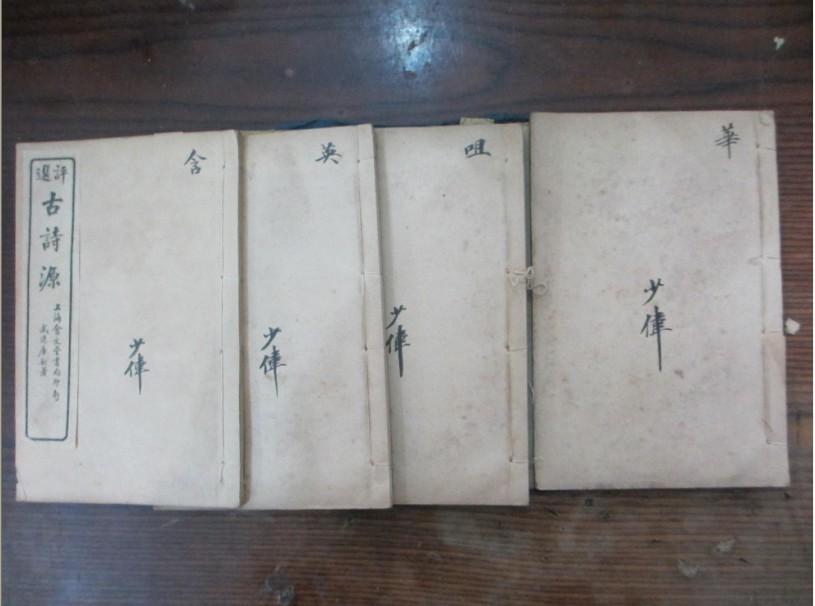 含
評選
古詩源
上海會文堂書局印
武進
少偉
英
少偉
咀
少偉
華
少偉